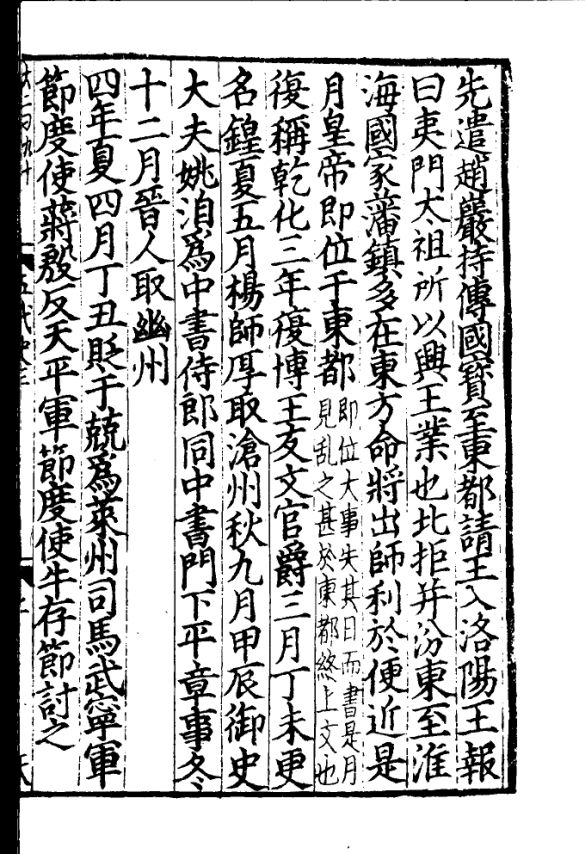 先遣趙巖持傳國寶至東都請王入洛陽王報
曰夷門太祖所以興王業也北拒并汾東至淮
海國家藩鎮多在東方命將出師利於便近是
月皇帝即位于東都即位大事失其日而書是月
見乱之甚於東都終上文也
復稱乾化三年復博王友文官爵三月丁未更
名鍠夏五月楊師厚取滄州秋九月甲辰御史
大夫姚洎為中書侍郎同中書門下平章事冬
十二月晉人取幽州
四年夏四月丁丑貶于兢為萊州司馬武寧軍
節度使蔣殷反天平軍節度使牛存節討之